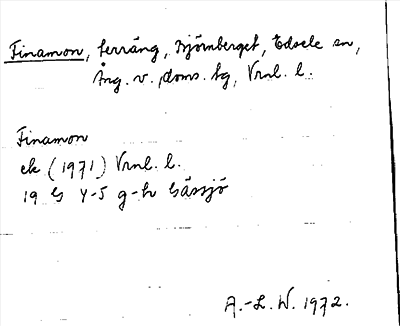 Finamon, terräng, Björnberget, Edsele sn,
Ång. v. doms. tg, Vrnl. l.
Finamon
ek (1971) Vrnl. l.
19 G 4-5 g-h Gåssjö
A.-L. W. 1972.